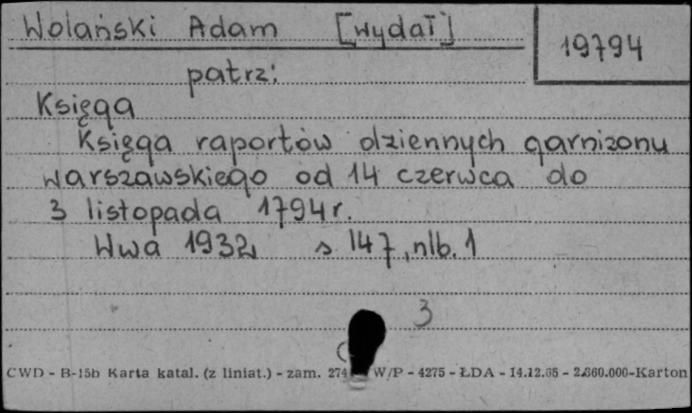 Wolański Adam [wydał]
19794
patrz:
Księga
Księga raportów dziennych garnizonu
warszawskiego od 14 czerwca do
3 listopada 1794r.
Wwa 1932 s 147, nlb. 1
3
CWD - B-15b Karta katal. (z liniat.) - zam. 274 W/P - 4275 - ŁDA - 14.12.65 - 2.860.000-Karton